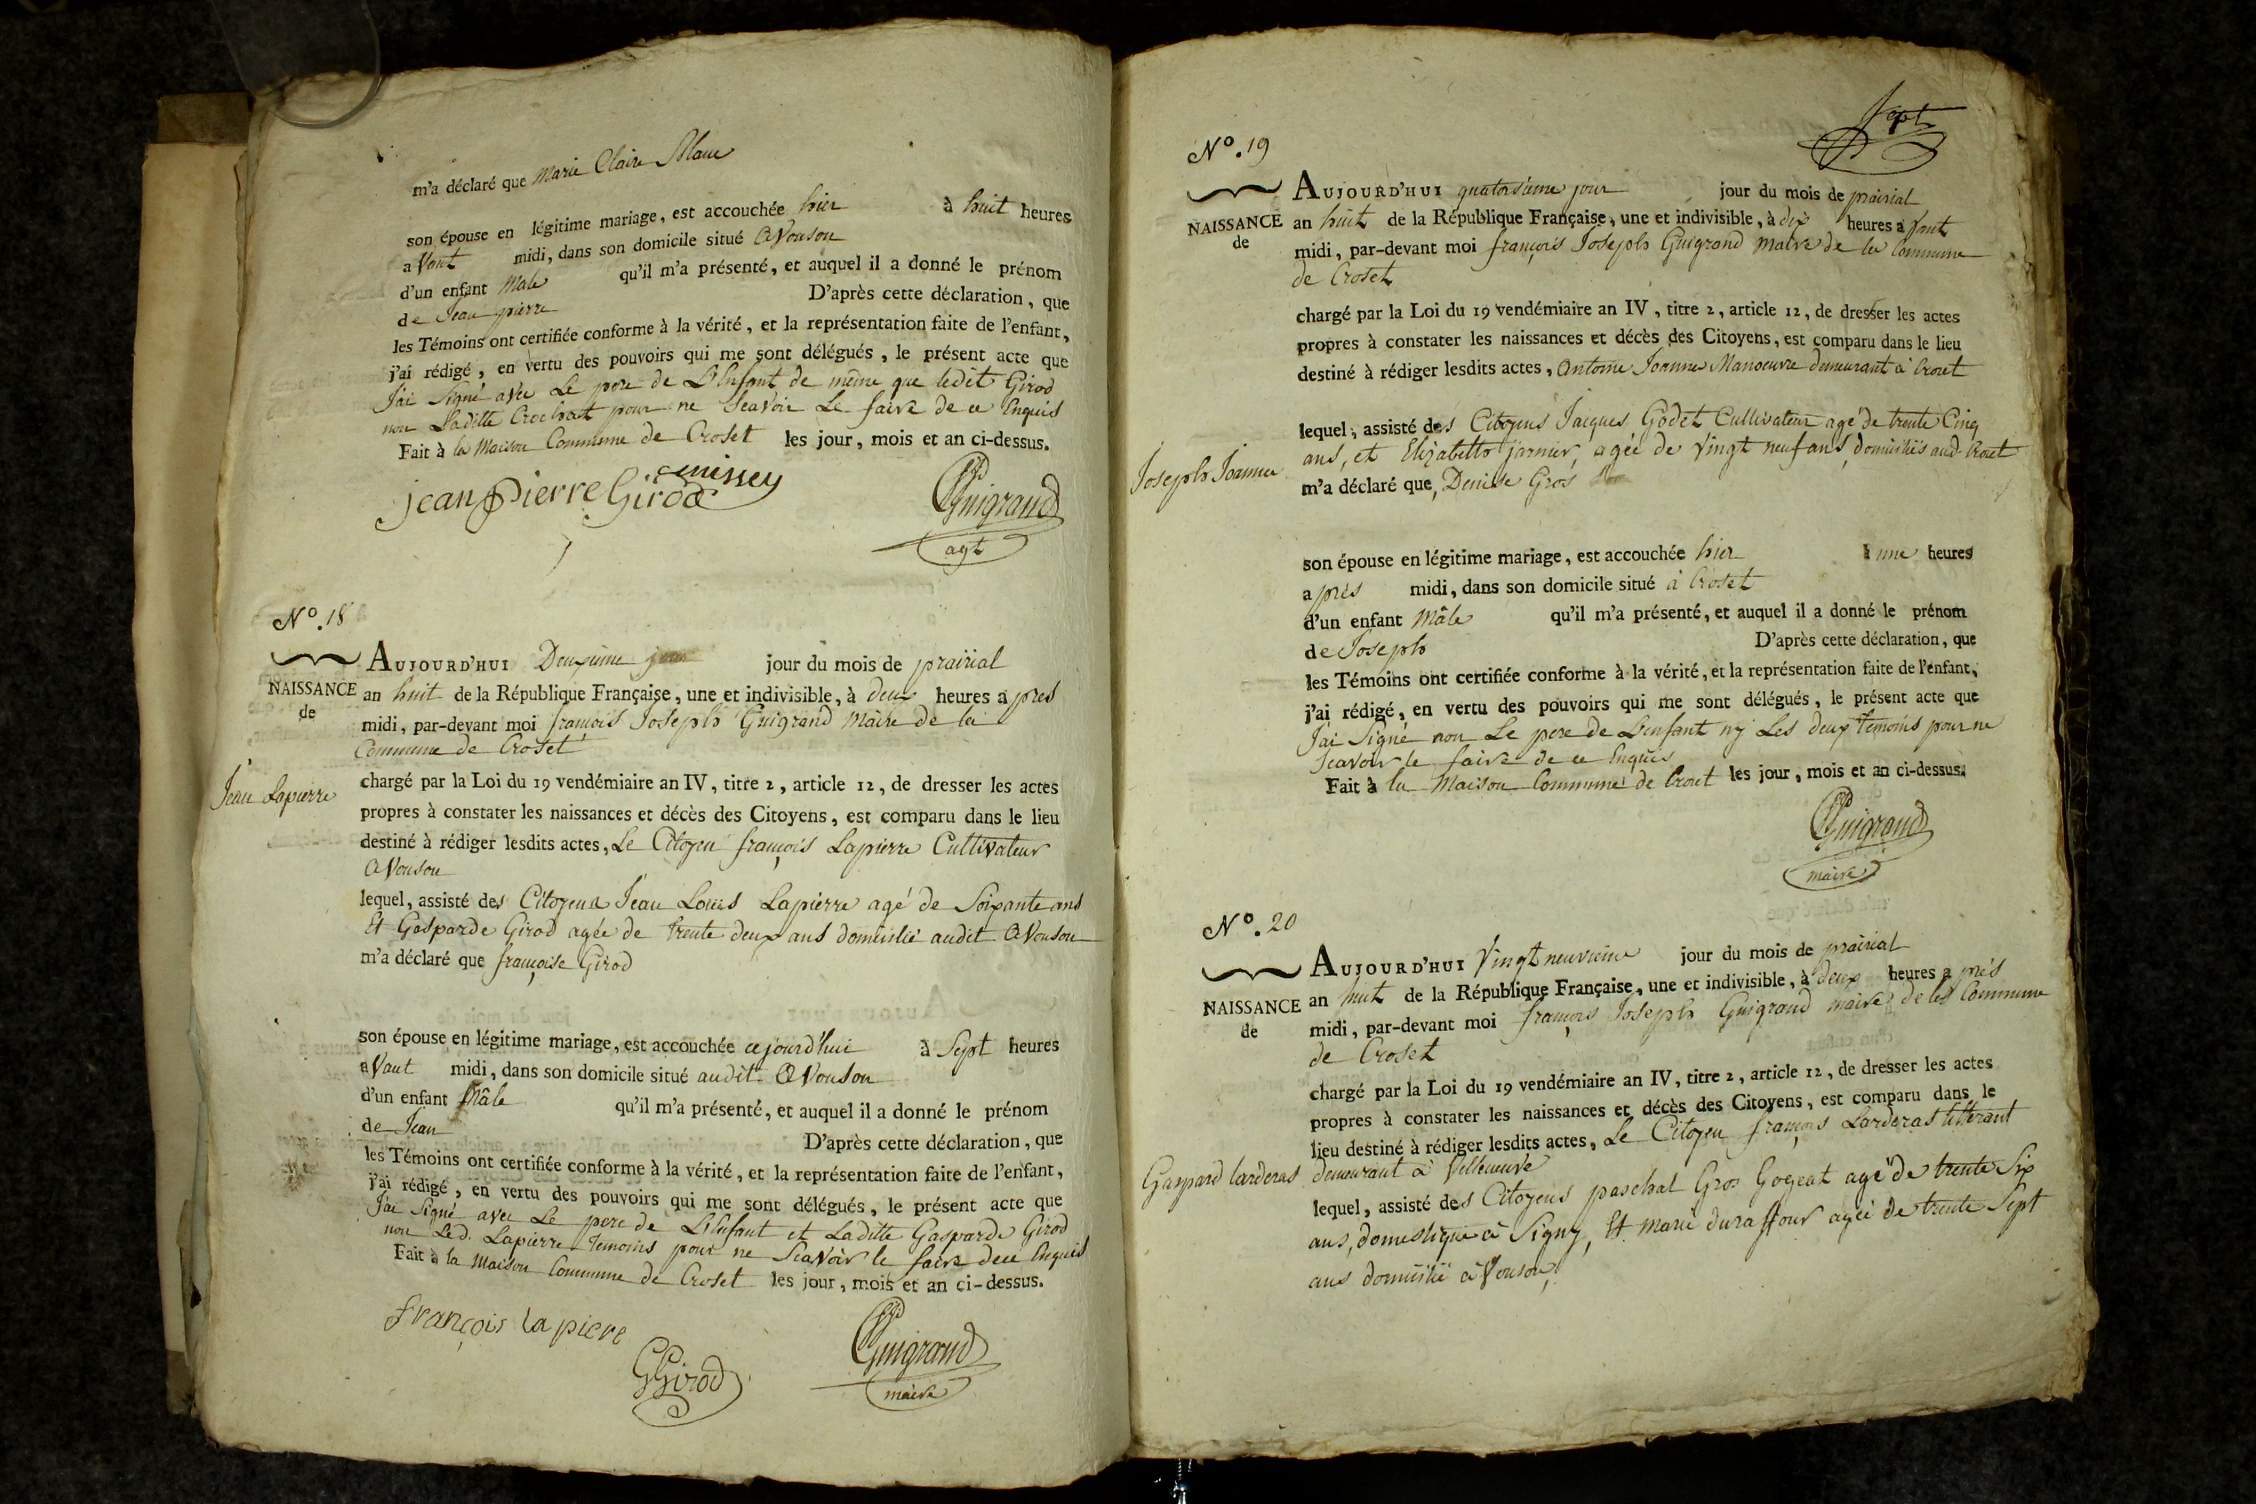 m'a déclaré que Marie Claire
son épouse en légitime mariage, est accouchée hier à huit heures
avant midi, dans son domicile situé avouson
d'un enfant Male qu'il m'a présenté, et auquel il a donné le prénom
de Jean pierre D'après cette déclaration, que
les Témoins ont certifiée conforme à la vérité, et la représentation faite de l'enfant,
j'ai rédigé, en vertu des pouvoirs qui me sont délégués, le présent acte que
J'ai Signé avec Le pere de L'Enfant de même que ledit Girod
non Laditte pour ne Scavoir Le faire de ce Enquis
Fait à la Maison Commune de Croset les jour, mois et an ci-dessus.
jean pierre Girod
Guigrand
agt
N°. 18
AUJOURD'HUI Deuxieme jour jour du mois de prairial
NAISSANCE an huit de la République Française, une et indivisible, à deux heures apres
de
midi, par-devant moi françois Joseph Guigrand Maire de la
Commune de Croset
Jean Lapierre
chargé par la Loi du 19 vendémiaire an IV, titre 2, article 12, de dresser les actes
propres à constater les naissances et décès des Citoyens, est comparu dans le lieu
destiné à rédiger lesdits actes, Le Citoyen françois Lapierre Cultivateur
avouson
lequel, assisté des Citoyens Jean Louis Lapierre agé de Soixante ans
Et Gasparde Girod agée de trente deux ans domicilié audit avouson
m'a déclaré que françoise Girod
son épouse en légitime mariage, est accouchée cejourd'hui à Sept heures
avant midi, dans son domicile situé audit avouson
d'un enfant Mâle qu'il m'a présenté, et auquel il a donné le prénom
de Jean D'après cette déclaration, que
les Témoins ont certifiée conforme à la vérité, et la représentation faite de l'enfant,
j'ai rédigé, en vertu des pouvoirs qui me sont délégués, le présent acte que
J'ai Signé avec Le pere de L'Enfant et Laditte Gasparde Girod
non Led. Lapierre temoins pour ne Scavoir le faire de ce Enquis
Fait à la Maison Commune de Croset les jour, mois et an ci-dessus.
françois la piere
GGirod
Guigrand
maire
Sept
N°. 19
AUJOURD'HUI quatorsieme jour jour du mois de prairial
NAISSANCE an huit de la République Française, une et indivisible, à dix heures avant
de
midi, par-devant moi françois Joseph Guigrand maire de la Commune
de Croset
chargé par la Loi du 19 vendémiaire an IV, titre 2, article 12, de dresser les actes
propres à constater les naissances et décès des Citoyens, est comparu dans le lieu
destiné à rédiger lesdits actes, Antoine Joanne Manoeuvre demeurant à Croset
lequel, assisté des Citoyens Jacques Godet Cultivateur agé de trente Cinq
ans, et Elizabetts agée de vingt neuf ans, domiciliés aud. Croset
Joseph Joanne
m'a déclaré que, Denise Gros
son épouse en légitime mariage, est accouchée hier à une heures
après midi, dans son domicile situé à Croset
d'un enfant Mâle qu'il m'a présenté, et auquel il a donné le prénom
de Joseph D'après cette déclaration, que
les Témoins ont certifiée conforme à la vérité, et la représentation faite de l'enfant,
j'ai rédigé, en vertu des pouvoirs qui me sont délégués, le présent acte que
J'ai Signé non Le pere de L'enfant ny Les deux temoins pour ne
Scavoir le faire de ce Enquis
Fait à la Maison Commune de Croset les jour, mois et an ci-dessus.
Guigrand
maire
N°. 20
AUJOURD'HUI Vingt neuvieme jour du mois de prairial
NAISSANCE an huit de la République Française, une et indivisible, à deux heures après
de
midi, par-devant moi françois Joseph Guigrand maire de la Commune
de Croset
chargé par la Loi du 19 vendémiaire an IV, titre 2, article 12, de dresser les actes
propres à constater les naissances et décès des Citoyens, est comparu dans le
lieu destiné à rédiger lesdits actes, Le Citoyen françois Larderas
Gaspard larderas
demeurant à Villeneuve
lequel, assisté des Citoyens paschal Gros Gogeat agé de trente Six
ans, domestique à Signy, Et Marie duraffour agée de trente Sept
ans domicilié avouson,